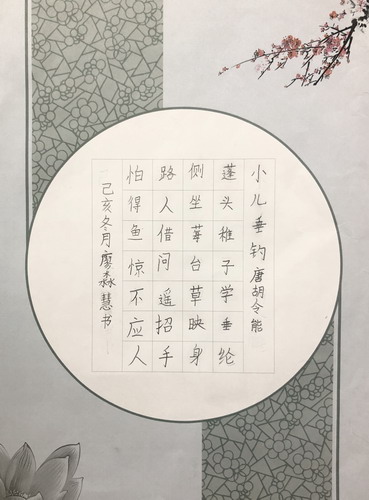 小儿垂钓 唐胡令能
蓬头稚子学垂纶
侧坐莓台草映身
路人借问遥招手
怕得鱼惊不应人
己亥冬月廖淼慧书